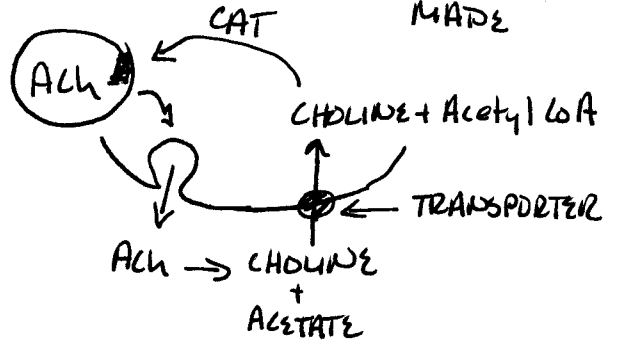 CAT
MADE
ACh
CHOLINE + Acetyl CoA
TRANSPORTER
ACh → CHOLINE
+
ACETATE